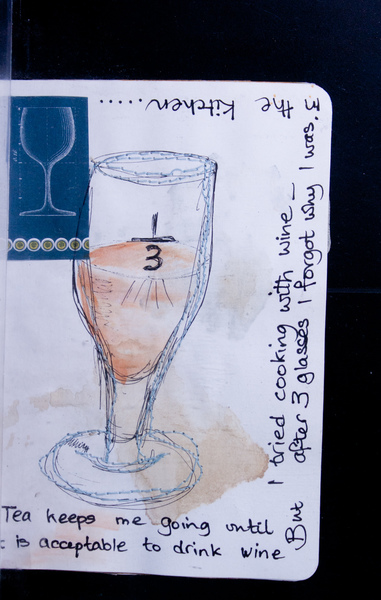 1
3
Tea keeps me going until
is acceptable to drink wine
But I tried cooking with wine –
after 3 glasses I forgot why I was in
the kitchen.....